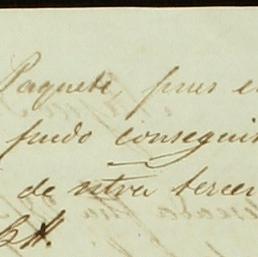 Paquete, pues e
pudo conseguir
de ntra tercer